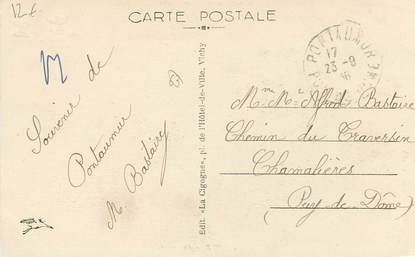 12 €
CARTE POSTALE
Souvenir de
Pontaumur
M. Bastaire
Edit. «La Cigogne», pl. de l'Hôtel-de-Ville, Vichy
PONTAUMUR
17
23-9
Mme Mr Alfred Bastaire
Chemin du Traversin
Chamalières
(Puy de Dôme)